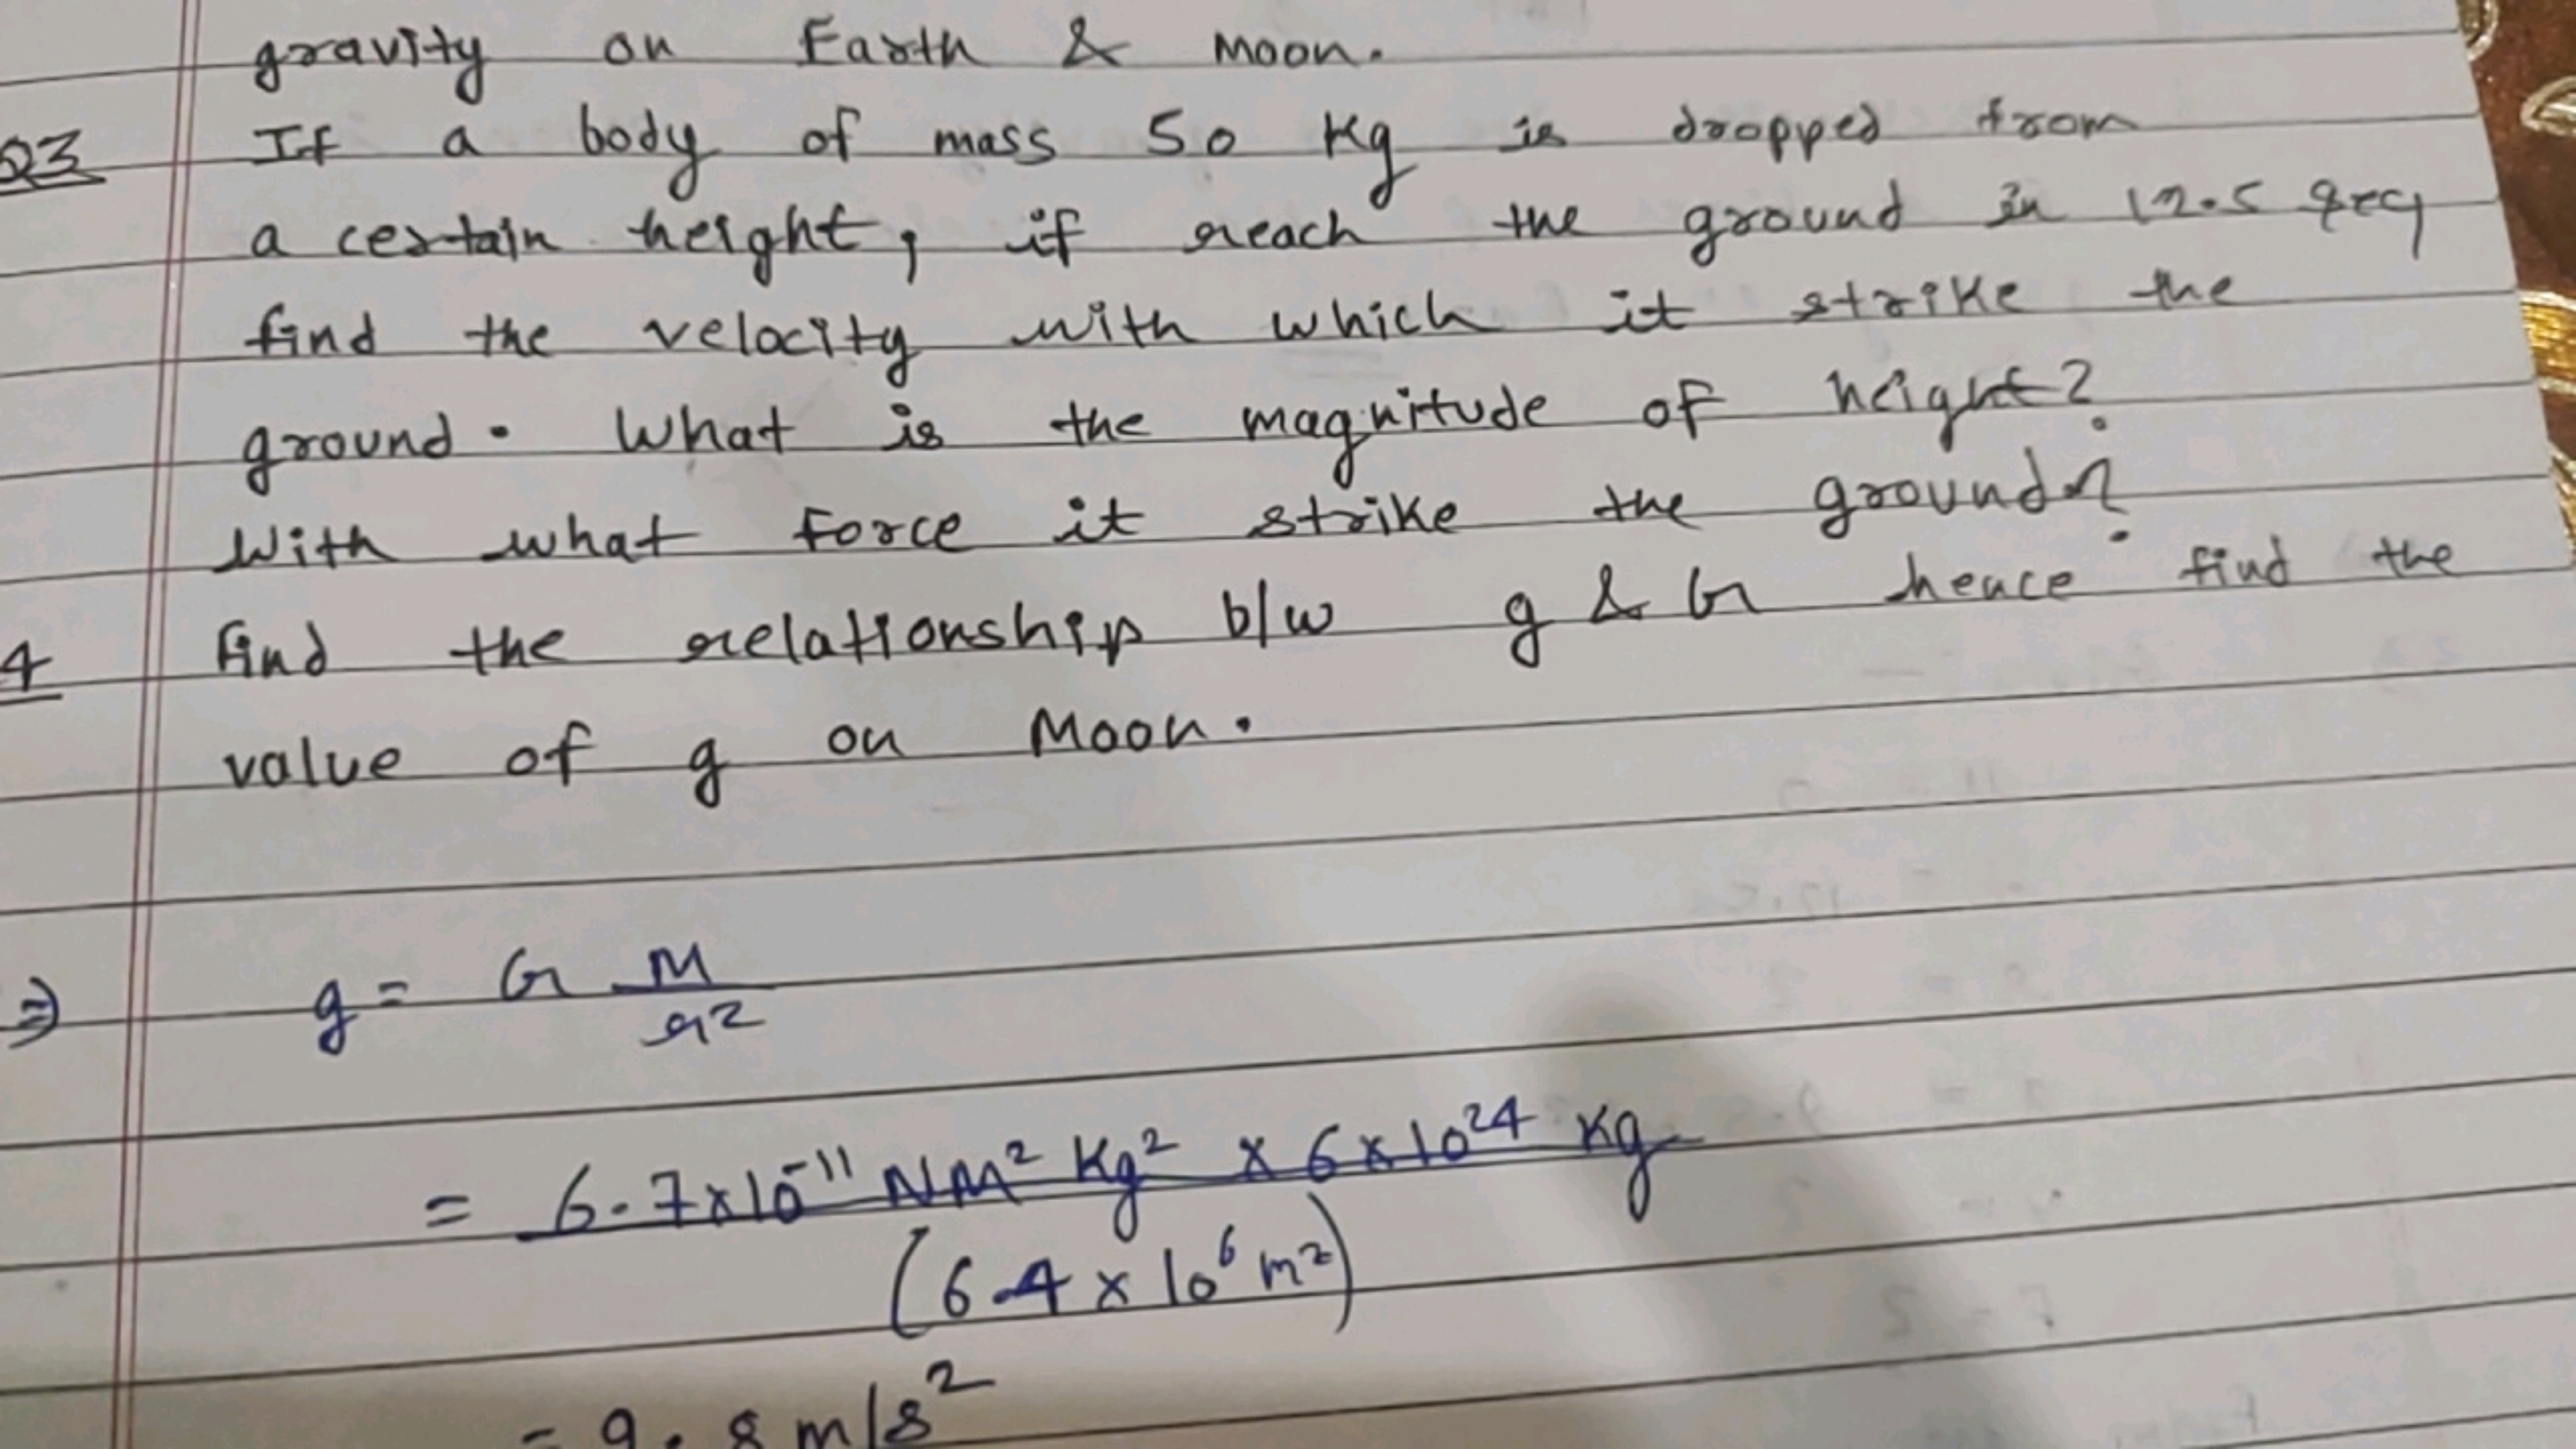 gravity on Earth & Moon.
Q3 If a body of mass 50 Kg is dropped from
a certain height, if reach the ground in 12.5 sec,
find the velocity with which it strike the
ground. What is the magnitude of height?
With what force it strike the ground?
4 Find the relationship b/w g & G hence find the
value of g on Moon.
⇒ g = G M
r²
= 6.7×10⁻¹¹ NM² Kg² × 6×10²⁴ Kg
(6.4 × 10⁶ m²)
= 9.8 m/s²